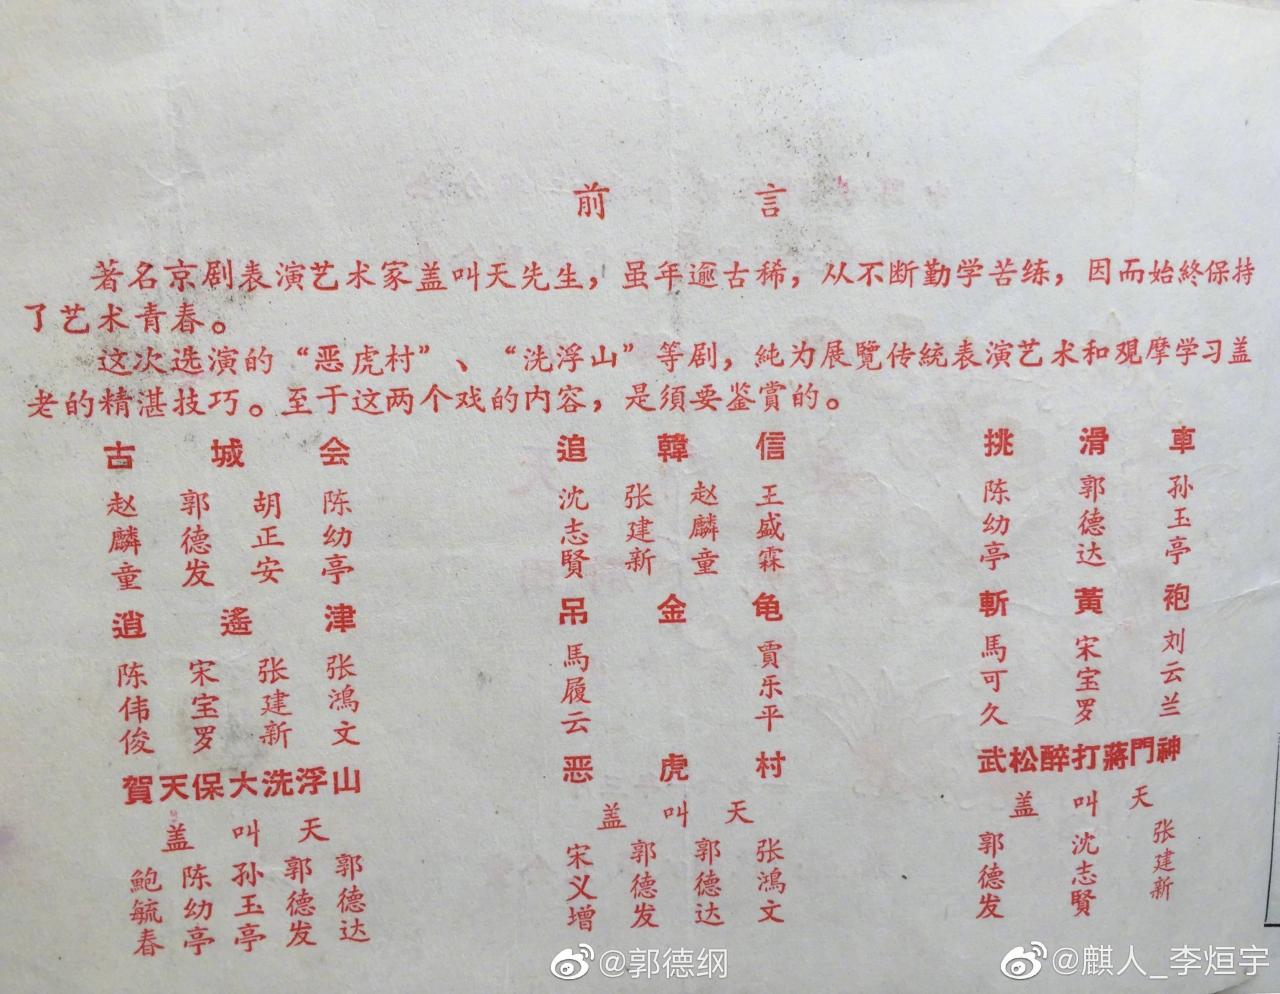 前言
著名京剧表演艺术家盖叫天先生，虽年逾古稀，从不断勤学苦练，因而始終保持
了艺术青春。
这次选演的“恶虎村”、“洗浮山”等剧，純为展覽传統表演艺术和观摩学习盖
老的精湛技巧。至于这两个戏的内容，是須要鉴賞的。
古城会
赵麟童
郭德发
胡正安
陈幼亭
追韓信
沈志賢
张建新
赵麟童
王盛霖
挑滑車
陈幼亭
郭德达
孙玉亭
逍遙津
陈伟俊
宋宝罗
张建新
张鴻文
吊金龟
馬履云
賈乐平
斬黃袍
馬可久
宋宝罗
刘云兰
賀天保大洗浮山
盖叫天
鲍毓春
陈幼亭
孙玉亭
郭德发
郭德达
恶虎村
盖叫天
宋义增
郭德发
郭德达
张鴻文
武松醉打蔣門神
盖叫天
郭德发
沈志賢
张建新
@郭德纲
@麒人_李烜宇